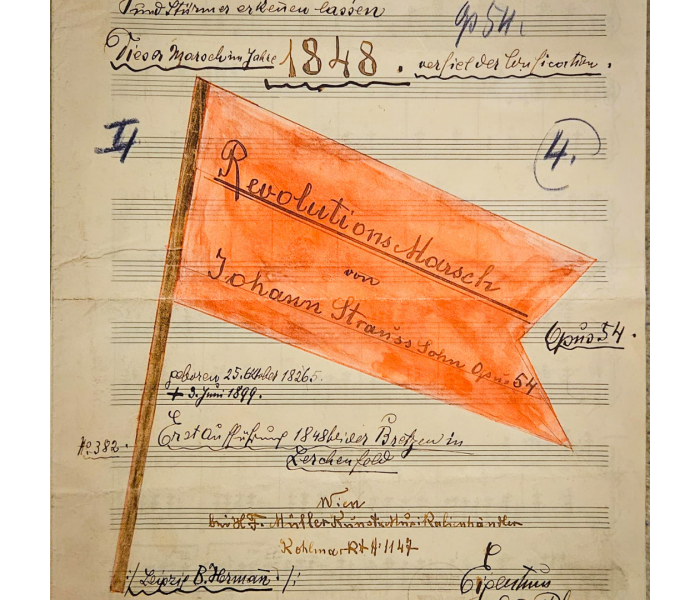 und Stürmer erkennen lassen
Op 54.
Dieser Marsch im Jahre 1848. verfiel der Confiscation.
II
4.
Revolutions Marsch
von
Johann Strauss Sohn Opus 54
Opus 54.
geboren 25. Oktober 1826 5.
+ 3. Juni 1899.
Erstaufführung 1848 bei der Bretzen in
No 382.
Lerchenfeld
Wien
bei H. F. Müller Kunst u. Musikalienhändler
Kohlmarkt № 1147
/: Leipzig B. Hermann :/
Eigenthum